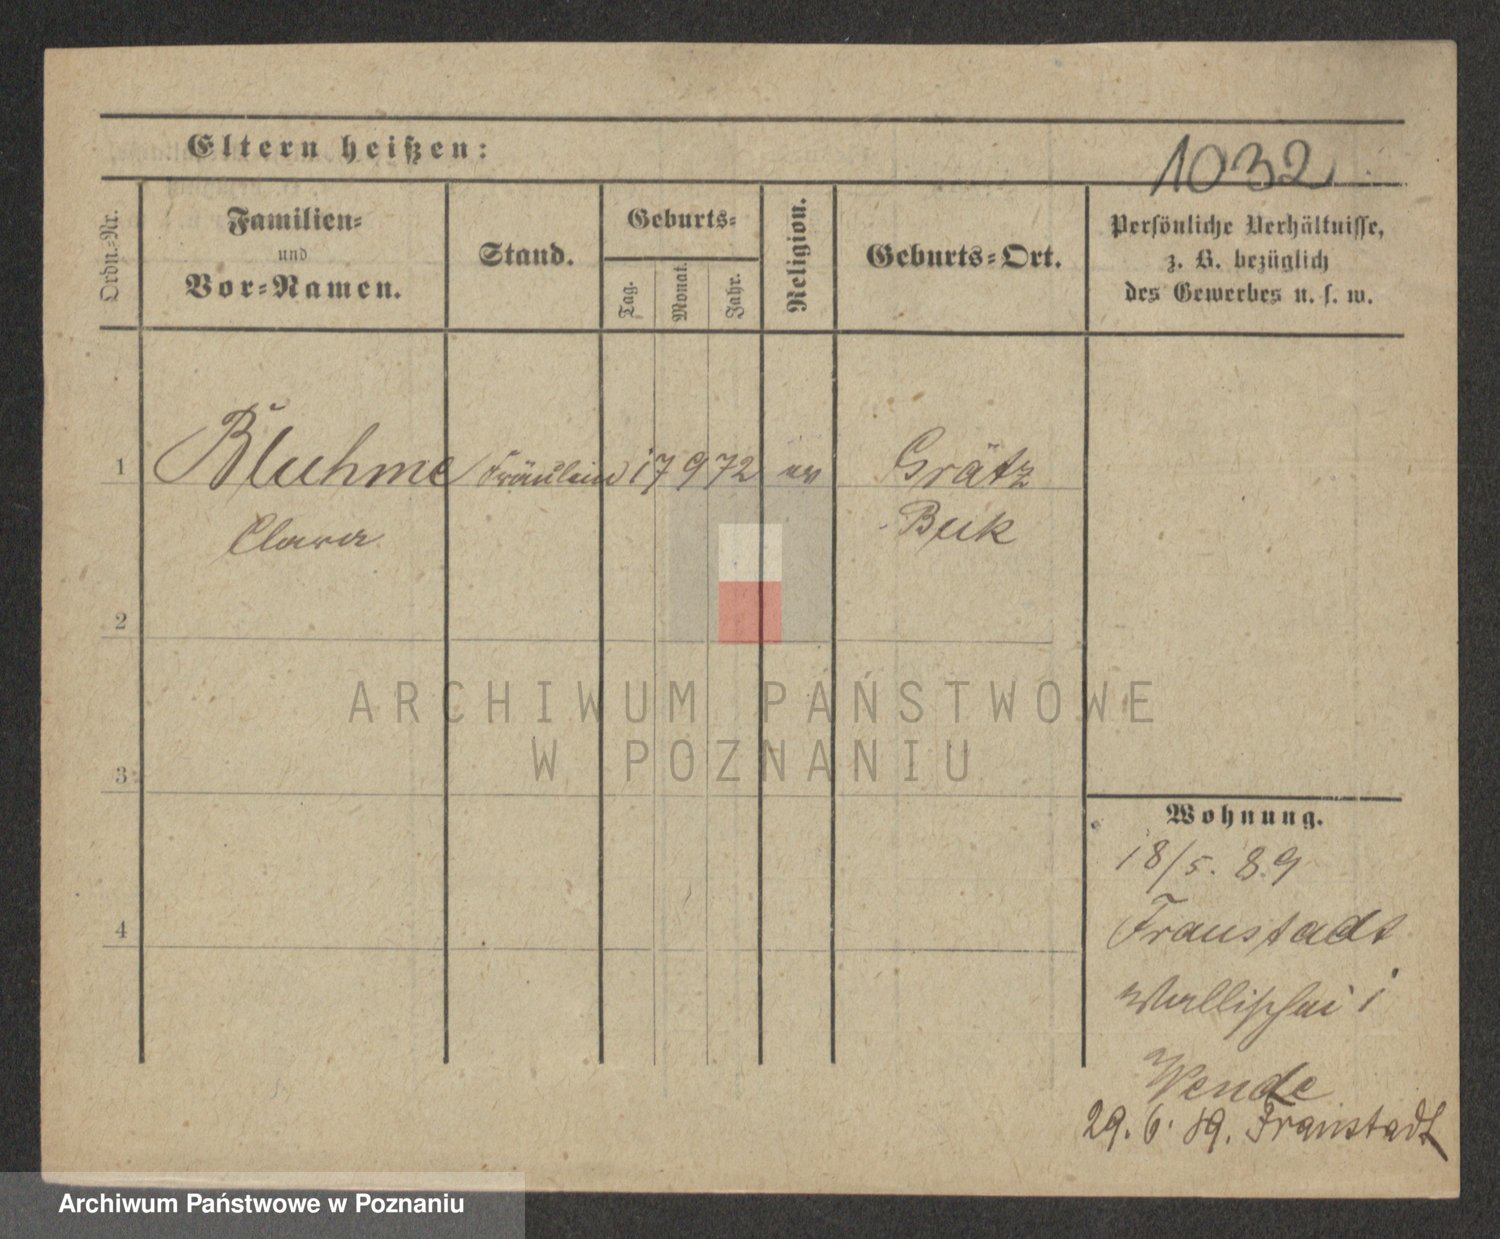 Eltern heißen:
1032
Ordn.-Nr.
Familien-
und
Vor-Namen.
Stand.
Geburts-
Tag.
Monat.
Jahr.
Religion.
Geburts-Ort.
Persönliche Verhältnisse,
z. B. bezüglich
des Gewerbes u. s. w.
1 Bluhme Fräulein 17 9 72 ev Grätz
Clara Buk
2
3
4
Wohnung.
18/5. 89
Fraustadt
Wallischei 1
Wende
29. 6. 89. Fraustadt
ARCHIWUM PAŃSTWOWE
W POZNANIU
Archiwum Państwowe w Poznaniu